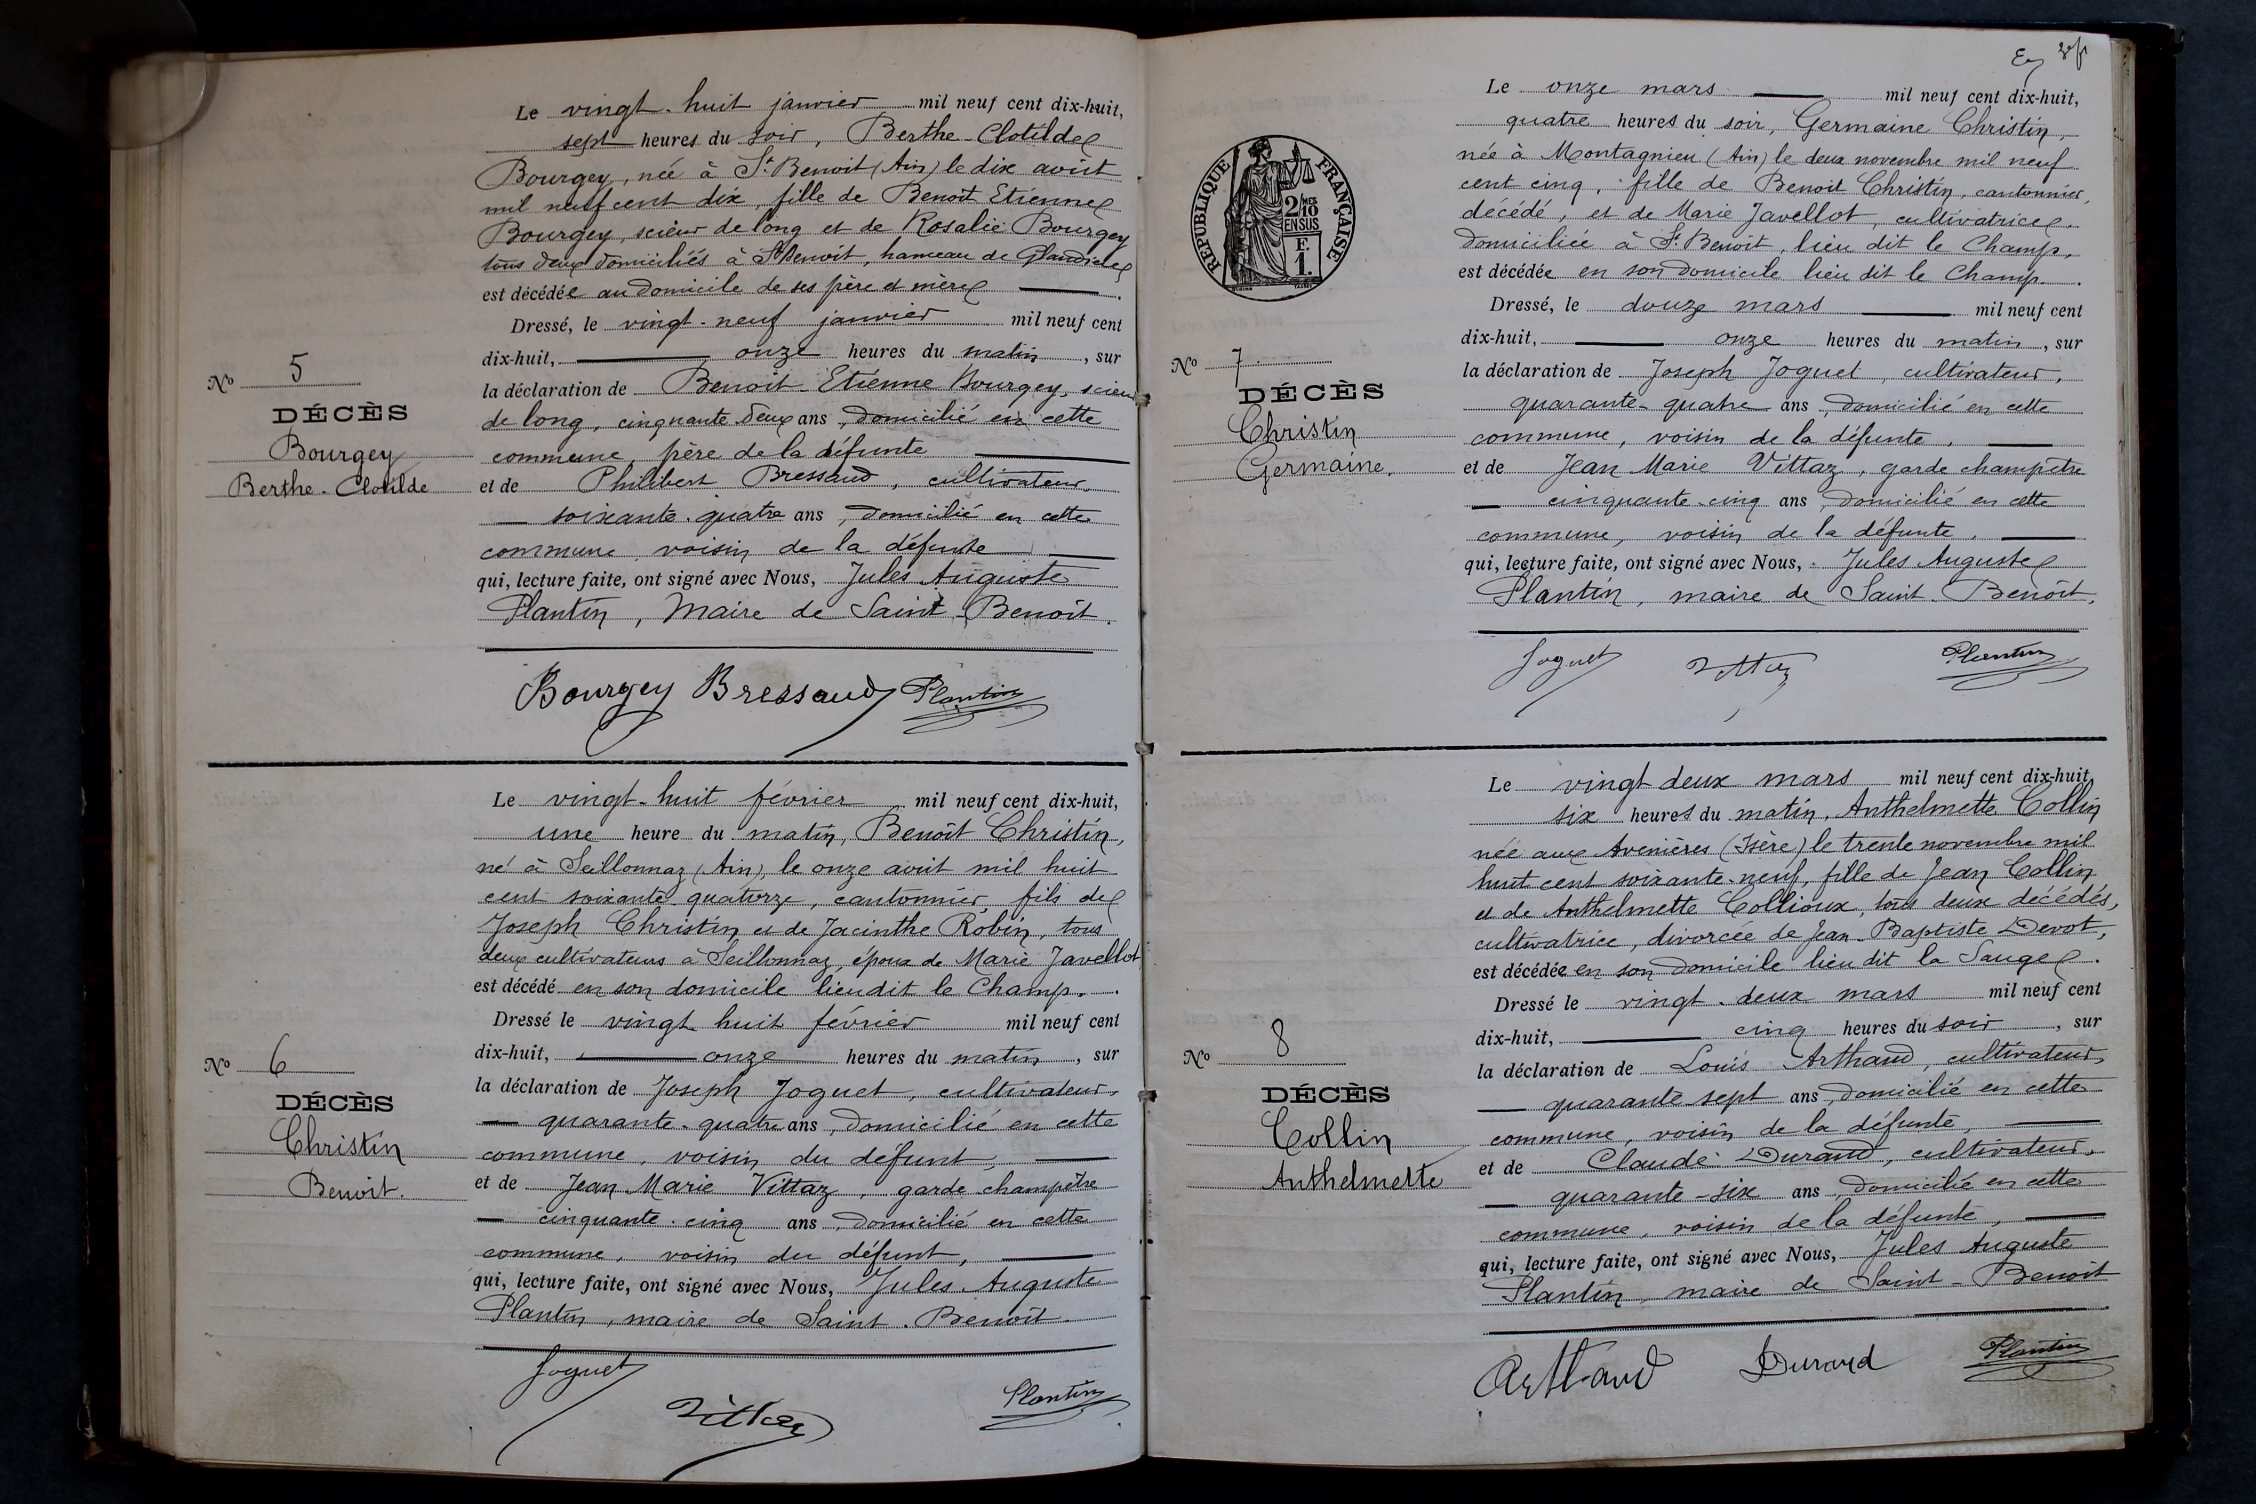 Le vingt-huit janvier mil neuf cent dix-huit,
sept heures du soir, Berthe-Clotilde
Bourgey, née à St Benoit (Ain) le dix août
mil neuf cent dix, fille de Benoît Etienne
Bourgey, scieur de long et de Rosalie Bourgey
tous deux domiciliés à St Benoit, hameau de Glandieu
est décédée au domicile de ses père et mère
Dressé, le vingt-neuf janvier mil neuf cent
dix-huit, onze heures du matin, sur
la déclaration de Benoit-Etienne Bourgey, scieur
de long, cinquante deux ans, domicilié en cette
commune, père de la défunte
et de Philibert Bressaud, cultivateur,
soixante-quatre ans, domicilié en cette
commune voisin de la défunte
qui, lecture faite, ont signé avec Nous, Jules Auguste
Plantin, Maire de Saint-Benoit.
Bourgey Bressaud Plantin
No 5
DÉCÈS
Bourgey
Berthe-Clotilde
Le vingt-huit février mil neuf cent dix-huit,
une heure du matin, Benoît Christin,
né à Seillonnaz (Ain), le onze août mil huit
cent soixante-quatorze, cantonnier, fils de
Joseph Christin et de Jacinthe Robin, tous
deux cultivateurs à Seillonnaz, époux de Marie Javellot
est décédé en son domicile lieu dit le Champ.
Dressé le vingt huit février mil neuf cent
dix-huit, onze heures du matin, sur
la déclaration de Joseph Joguet, cultivateur,
quarante-quatre ans, domicilié en cette
commune, voisin du défunt,
et de Jean Marie Vittaz, garde champêtre
cinquante-cinq ans, domicilié en cette
commune, voisin du défunt,
qui, lecture faite, ont signé avec Nous, Jules Auguste
Plantin, maire de Saint-Benoit.
Joguet Vittaz Plantin
No 6
DÉCÈS
Christin
Benoit.
RÉPUBLIQUE FRANÇAISE
2/10 MES
EN SUS
F.
1.
Le onze mars mil neuf cent dix-huit,
quatre heures du soir, Germaine Christin,
née à Montagnieu (Ain) le deux novembre mil neuf
cent cinq, fille de Benoit Christin, cantonnier,
décédé, et de Marie Javellot, cultivatrice,
domiciliée à St Benoit, lieu dit le Champ,
est décédée en son domicile lieu dit le Champ.
Dressé, le douze mars mil neuf cent
dix-huit, onze heures du matin, sur
la déclaration de Joseph Joguet, cultivateur,
quarante-quatre ans, domicilié en cette
commune, voisin de la défunte,
et de Jean Marie Vittaz, garde champêtre
cinquante-cinq ans, domicilié en cette
commune, voisin de la défunte,
qui, lecture faite, ont signé avec Nous, Jules Auguste
Plantin, maire de Saint-Benoît.
Joguet Vittaz Plantin
No 7
DÉCÈS
Christin
Germaine.
Le vingt deux mars mil neuf cent dix-huit,
six heures du matin, Anthelmette Collin
née aux Avenières (Isère) le trente novembre mil
huit cent soixante-neuf, fille de Jean Collin
et de Anthelmette Collioux, tous deux décédés,
cultivatrice, divorcée de Jean-Baptiste Devot,
est décédée en son domicile lieu dit la Sauge.
Dressé le vingt-deux mars mil neuf cent
dix-huit, cinq heures du soir, sur
la déclaration de Louis Arthaud, cultivateur,
quarante sept ans, domicilié en cette
commune, voisin de la défunte,
et de Claude Durand, cultivateur,
quarante-six ans, domicilié en cette
commune, voisin de la défunte,
qui, lecture faite, ont signé avec Nous, Jules Auguste
Plantin, maire de Saint-Benoit
Arthaud Durand Plantin
No 8
DÉCÈS
Collin
Anthelmette